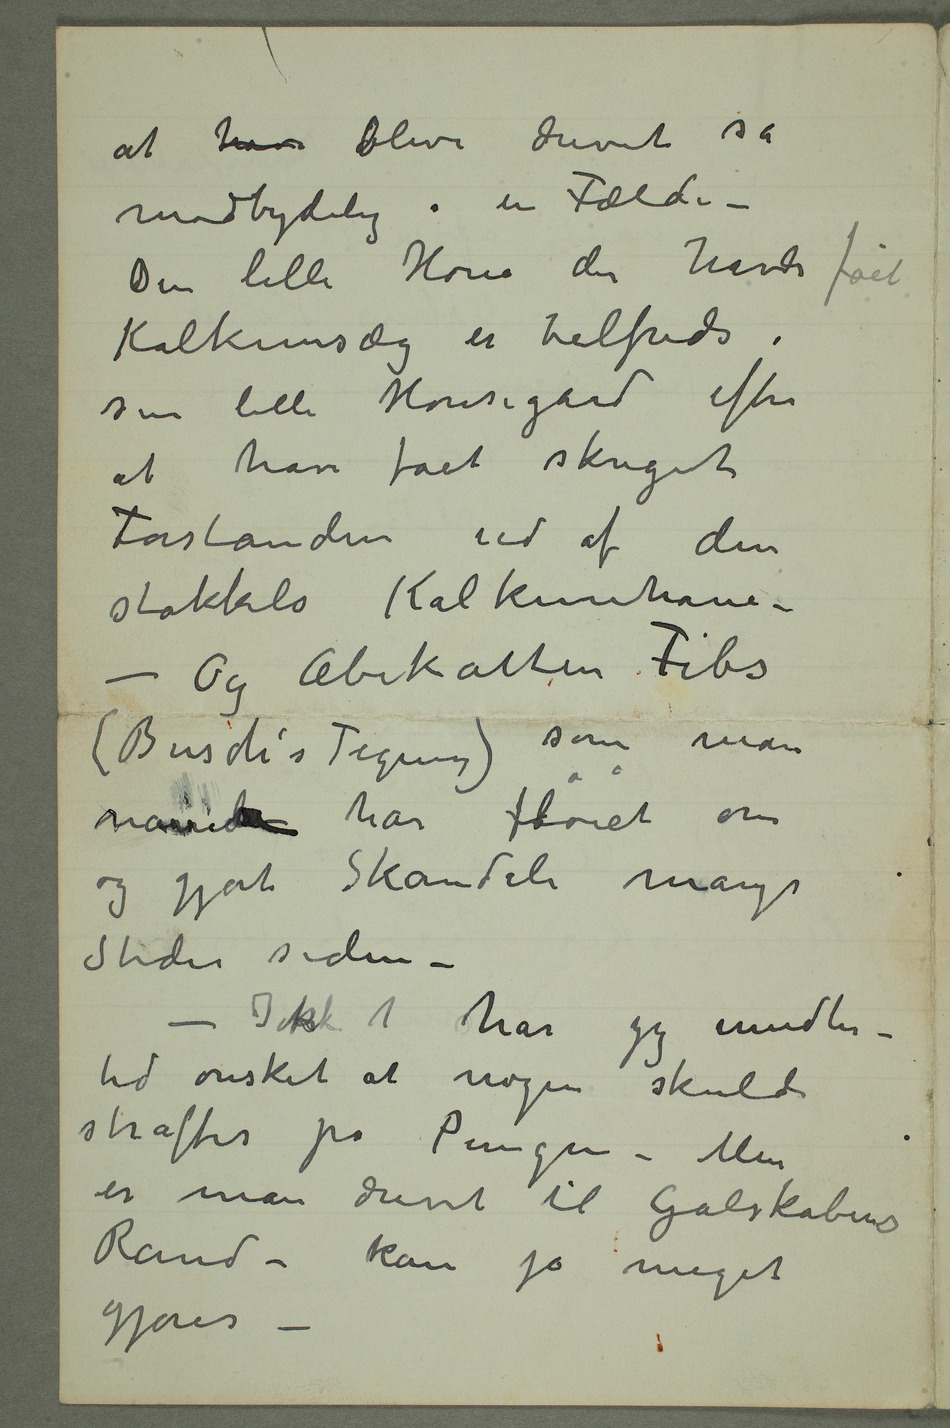 at have blive drevet så
modbydelig i en Fælde –
Den lille Høne der havde fået
Kalkunsæg er tilfreds i
sin lille Hønsegård efter
at have faet skreget
Forstanden ud af den
stakkels Kalkunhane –
– Og Abekatten Fibs
(Busch's Tegning) som man
har fløiet om
og gjort Skandale mange
Steder siden –
– Ikke har jeg imidler-
tid ønsket at nogen skulde
straffes på Pungen – Men
er man drevet til Galskabens
Rand – kan jo meget
gjøres –